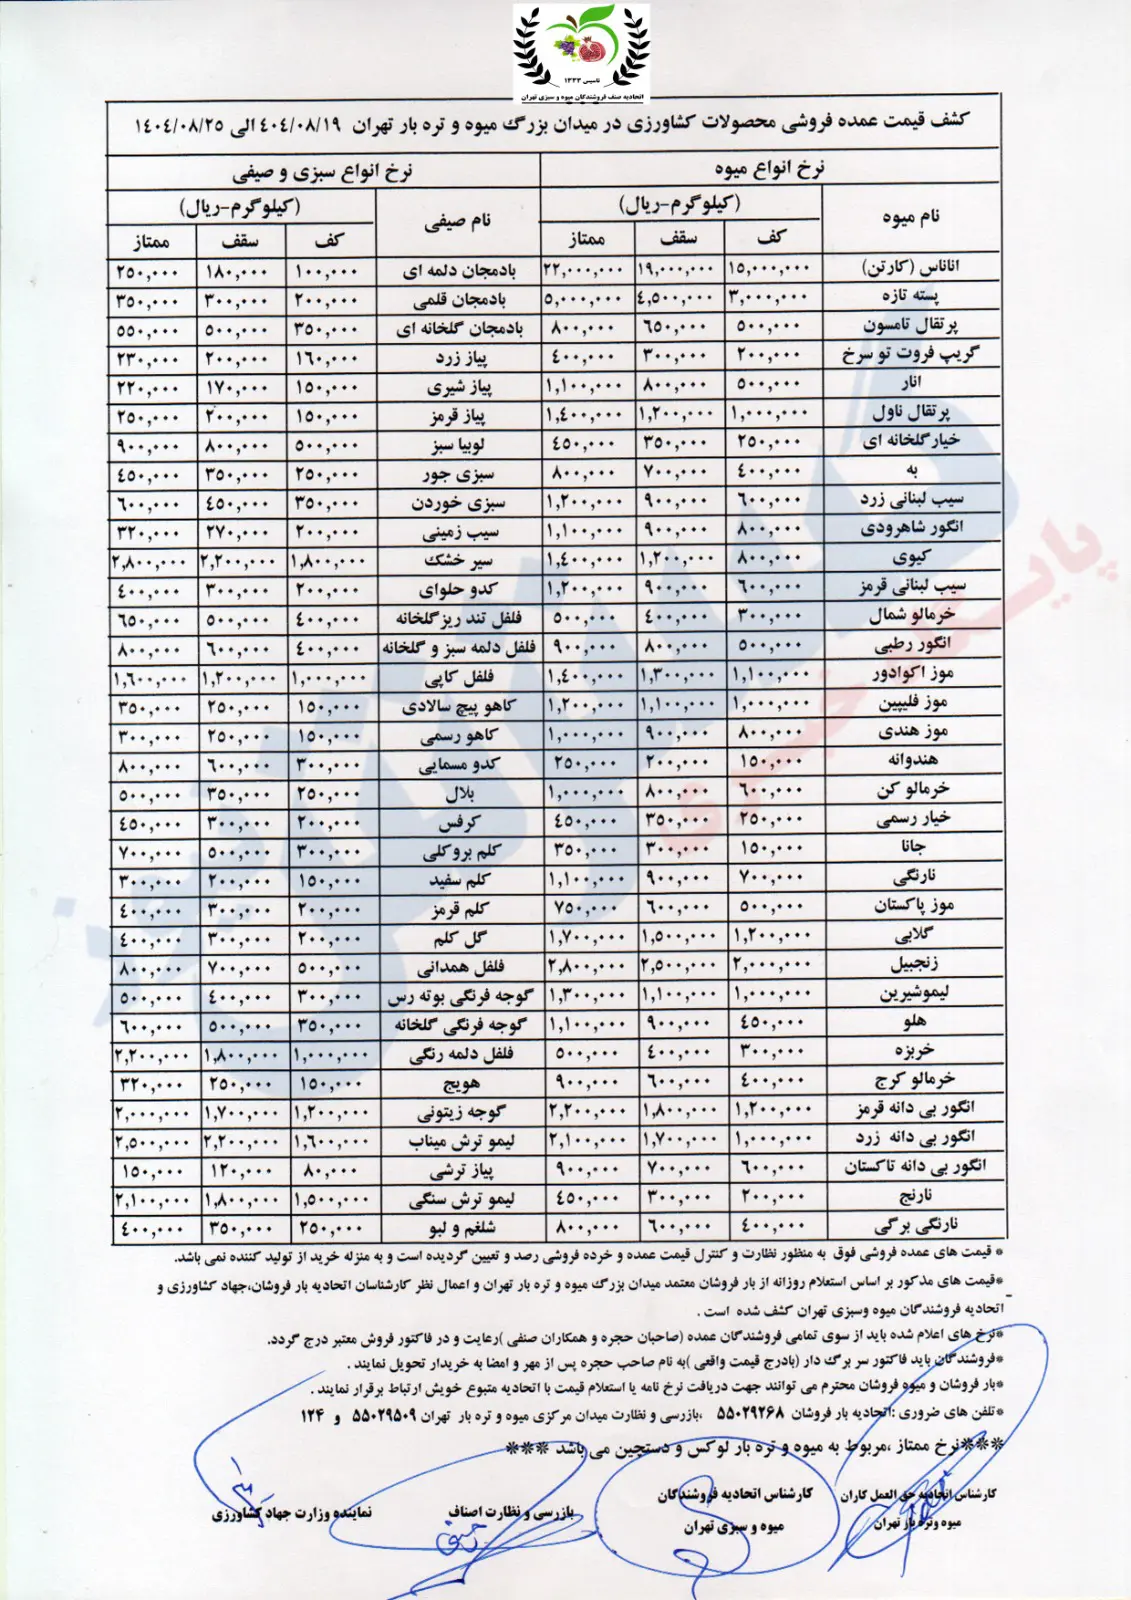 تاسیس ۱۳۳۳
اتحادیه صنف فروشندگان میوه و سبزی تهران
کشف قیمت عمده فروشی محصولات کشاورزی در میدان بزرگ میوه و تره بار تهران ۴۰۴/۰۸/۱۹ الی ۱۴۰۴/۰۸/۲۵
نرخ انواع میوه نرخ انواع سبزی و صیفی
نام میوه (کیلوگرم-ریال) نام صیفی (کیلوگرم-ریال)
کف سقف ممتاز کف سقف ممتاز
اناناس (کارتن) ۱۵,۰۰۰,۰۰۰ ۱۹,۰۰۰,۰۰۰ ۲۲,۰۰۰,۰۰۰ بادمجان دلمه ای ۱۰۰,۰۰۰ ۱۸۰,۰۰۰ ۲۵۰,۰۰۰
پسته تازه ۳,۰۰۰,۰۰۰ ۴,۵۰۰,۰۰۰ ۵,۰۰۰,۰۰۰ بادمجان قلمی ۲۰۰,۰۰۰ ۳۰۰,۰۰۰ ۳۵۰,۰۰۰
پرتقال تامسون ۵۰۰,۰۰۰ ۶۵۰,۰۰۰ ۸۰۰,۰۰۰ بادمجان گلخانه ای ۳۵۰,۰۰۰ ۵۰۰,۰۰۰ ۵۵۰,۰۰۰
گریپ فروت تو سرخ ۲۰۰,۰۰۰ ۳۰۰,۰۰۰ ۴۰۰,۰۰۰ پیاز زرد ۱۶۰,۰۰۰ ۲۰۰,۰۰۰ ۲۳۰,۰۰۰
انار ۵۰۰,۰۰۰ ۸۰۰,۰۰۰ ۱,۱۰۰,۰۰۰ پیاز شیری ۱۵۰,۰۰۰ ۱۷۰,۰۰۰ ۲۲۰,۰۰۰
پرتقال ناول ۱,۰۰۰,۰۰۰ ۱,۲۰۰,۰۰۰ ۱,۴۰۰,۰۰۰ پیاز قرمز ۱۵۰,۰۰۰ ۲۰۰,۰۰۰ ۲۵۰,۰۰۰
خیارگلخانه ای ۲۵۰,۰۰۰ ۳۵۰,۰۰۰ ۴۵۰,۰۰۰ لوبیا سبز ۵۰۰,۰۰۰ ۸۰۰,۰۰۰ ۹۰۰,۰۰۰
به ۴۰۰,۰۰۰ ۷۰۰,۰۰۰ ۸۰۰,۰۰۰ سبزی جور ۲۵۰,۰۰۰ ۳۵۰,۰۰۰ ۴۵۰,۰۰۰
سیب لبنانی زرد ۶۰۰,۰۰۰ ۹۰۰,۰۰۰ ۱,۲۰۰,۰۰۰ سبزی خوردن ۳۵۰,۰۰۰ ۴۵۰,۰۰۰ ۶۰۰,۰۰۰
انگور شاهرودی ۸۰۰,۰۰۰ ۹۰۰,۰۰۰ ۱,۱۰۰,۰۰۰ سیب زمینی ۲۰۰,۰۰۰ ۲۷۰,۰۰۰ ۳۲۰,۰۰۰
کیوی ۸۰۰,۰۰۰ ۱,۲۰۰,۰۰۰ ۱,۴۰۰,۰۰۰ سیر خشک ۱,۸۰۰,۰۰۰ ۲,۲۰۰,۰۰۰ ۲,۸۰۰,۰۰۰
سیب لبنانی قرمز ۶۰۰,۰۰۰ ۹۰۰,۰۰۰ ۱,۲۰۰,۰۰۰ کدو حلوای ۲۰۰,۰۰۰ ۳۰۰,۰۰۰ ۴۰۰,۰۰۰
خرمالو شمال ۳۰۰,۰۰۰ ۴۰۰,۰۰۰ ۵۰۰,۰۰۰ فلفل تند ریز گلخانه ۴۰۰,۰۰۰ ۵۰۰,۰۰۰ ۶۵۰,۰۰۰
انگور رطبی ۵۰۰,۰۰۰ ۸۰۰,۰۰۰ ۹۰۰,۰۰۰ فلفل دلمه سبز و گلخانه ۴۰۰,۰۰۰ ۶۰۰,۰۰۰ ۸۰۰,۰۰۰
موز اکوادور ۱,۱۰۰,۰۰۰ ۱,۳۰۰,۰۰۰ ۱,۴۰۰,۰۰۰ فلفل کاپی ۱,۰۰۰,۰۰۰ ۱,۲۰۰,۰۰۰ ۱,۶۰۰,۰۰۰
موز فلیپین ۱,۰۰۰,۰۰۰ ۱,۱۰۰,۰۰۰ ۱,۲۰۰,۰۰۰ کاهو پیچ سالادی ۱۵۰,۰۰۰ ۲۵۰,۰۰۰ ۳۵۰,۰۰۰
موز هندی ۸۰۰,۰۰۰ ۹۰۰,۰۰۰ ۱,۰۰۰,۰۰۰ کاهو رسمی ۱۵۰,۰۰۰ ۲۵۰,۰۰۰ ۳۰۰,۰۰۰
هندوانه ۱۵۰,۰۰۰ ۲۰۰,۰۰۰ ۲۵۰,۰۰۰ کدو مسمایی ۳۰۰,۰۰۰ ۶۰۰,۰۰۰ ۸۰۰,۰۰۰
خرمالو کن ۶۰۰,۰۰۰ ۸۰۰,۰۰۰ ۱,۰۰۰,۰۰۰ بلال ۲۵۰,۰۰۰ ۳۵۰,۰۰۰ ۵۰۰,۰۰۰
خیار رسمی ۲۵۰,۰۰۰ ۳۵۰,۰۰۰ ۴۵۰,۰۰۰ کرفس ۲۰۰,۰۰۰ ۳۰۰,۰۰۰ ۴۵۰,۰۰۰
جانا ۱۵۰,۰۰۰ ۳۰۰,۰۰۰ ۳۵۰,۰۰۰ کلم بروکلی ۳۰۰,۰۰۰ ۵۰۰,۰۰۰ ۷۰۰,۰۰۰
نارنگی ۷۰۰,۰۰۰ ۹۰۰,۰۰۰ ۱,۱۰۰,۰۰۰ کلم سفید ۱۵۰,۰۰۰ ۲۰۰,۰۰۰ ۳۰۰,۰۰۰
موز پاکستان ۵۰۰,۰۰۰ ۶۰۰,۰۰۰ ۷۵۰,۰۰۰ کلم قرمز ۲۰۰,۰۰۰ ۳۰۰,۰۰۰ ۴۰۰,۰۰۰
گلابی ۱,۲۰۰,۰۰۰ ۱,۵۰۰,۰۰۰ ۱,۷۰۰,۰۰۰ گل کلم ۲۰۰,۰۰۰ ۳۰۰,۰۰۰ ۴۰۰,۰۰۰
زنجبیل ۲,۰۰۰,۰۰۰ ۲,۵۰۰,۰۰۰ ۲,۸۰۰,۰۰۰ فلفل همدانی ۵۰۰,۰۰۰ ۷۰۰,۰۰۰ ۸۰۰,۰۰۰
لیموشیرین ۱,۰۰۰,۰۰۰ ۱,۱۰۰,۰۰۰ ۱,۳۰۰,۰۰۰ گوجه فرنگی بوته رس ۳۰۰,۰۰۰ ۴۰۰,۰۰۰ ۵۰۰,۰۰۰
هلو ۴۵۰,۰۰۰ ۹۰۰,۰۰۰ ۱,۱۰۰,۰۰۰ گوجه فرنگی گلخانه ۳۵۰,۰۰۰ ۵۰۰,۰۰۰ ۶۰۰,۰۰۰
خربزه ۳۰۰,۰۰۰ ۴۰۰,۰۰۰ ۵۰۰,۰۰۰ فلفل دلمه رنگی ۱,۰۰۰,۰۰۰ ۱,۸۰۰,۰۰۰ ۲,۲۰۰,۰۰۰
خرمالو کرج ۴۰۰,۰۰۰ ۶۰۰,۰۰۰ ۹۰۰,۰۰۰ هویج ۱۵۰,۰۰۰ ۲۵۰,۰۰۰ ۳۲۰,۰۰۰
انگور بی دانه قرمز ۱,۲۰۰,۰۰۰ ۱,۸۰۰,۰۰۰ ۲,۲۰۰,۰۰۰ گوجه زیتونی ۱,۲۰۰,۰۰۰ ۱,۷۰۰,۰۰۰ ۲,۰۰۰,۰۰۰
انگور بی دانه زرد ۱,۰۰۰,۰۰۰ ۱,۷۰۰,۰۰۰ ۲,۱۰۰,۰۰۰ لیمو ترش میناب ۱,۶۰۰,۰۰۰ ۲,۲۰۰,۰۰۰ ۲,۵۰۰,۰۰۰
انگور بی دانه تاکستان ۶۰۰,۰۰۰ ۷۰۰,۰۰۰ ۹۰۰,۰۰۰ پیاز ترشی ۸۰,۰۰۰ ۱۲۰,۰۰۰ ۱۵۰,۰۰۰
نارنج ۲۰۰,۰۰۰ ۳۰۰,۰۰۰ ۴۵۰,۰۰۰ لیمو ترش سنگی ۱,۵۰۰,۰۰۰ ۱,۸۰۰,۰۰۰ ۲,۱۰۰,۰۰۰
نارنگی برگی ۴۰۰,۰۰۰ ۶۰۰,۰۰۰ ۸۰۰,۰۰۰ شلغم و لبو ۲۵۰,۰۰۰ ۳۵۰,۰۰۰ ۴۰۰,۰۰۰
* قیمت های عمده فروشی فوق به منظور نظارت و کنترل قیمت عمده و خرده فروشی رصد و تعیین گردیده است و به منزله خرید از تولید کننده نمی باشد.
*قیمت های مذکور بر اساس استعلام روزانه از بار فروشان معتمد میدان بزرگ میوه و تره بار تهران و اعمال نظر کارشناسان اتحادیه بار فروشان،جهاد کشاورزی و
اتحادیه فروشندگان میوه وسبزی تهران کشف شده است .
*نرخ های اعلام شده باید از سوی تمامی فروشندگان عمده (صاحبان حجره و همکاران صنفی )رعایت و در فاکتور فروش معتبر درج گردد.
*فروشندگان باید فاکتور سر برگ دار (بادرج قیمت واقعی )به نام صاحب حجره پس از مهر و امضا به خریدار تحویل نمایند .
*بار فروشان و میوه فروشان محترم می توانند جهت دریافت نرخ نامه یا استعلام قیمت با اتحادیه متبوع خویش ارتباط برقرار نمایند .
*تلفن های ضروری :اتحادیه بار فروشان ۵۵۰۲۹۲۶۸ ،بازرسی و نظارت میدان مرکزی میوه و تره بار تهران ۵۵۰۲۹۵۰۹ و ۱۲۴
***نرخ ممتاز ،مربوط به میوه و تره بار لوکس و دستچین می باشد ***
کارشناس اتحادیه حق العمل کاران میوه وتره بار تهران
کارشناس اتحادیه فروشندگان میوه و سبزی تهران
بازرسی و نظارت اصناف
نماینده وزارت جهاد کشاورزی